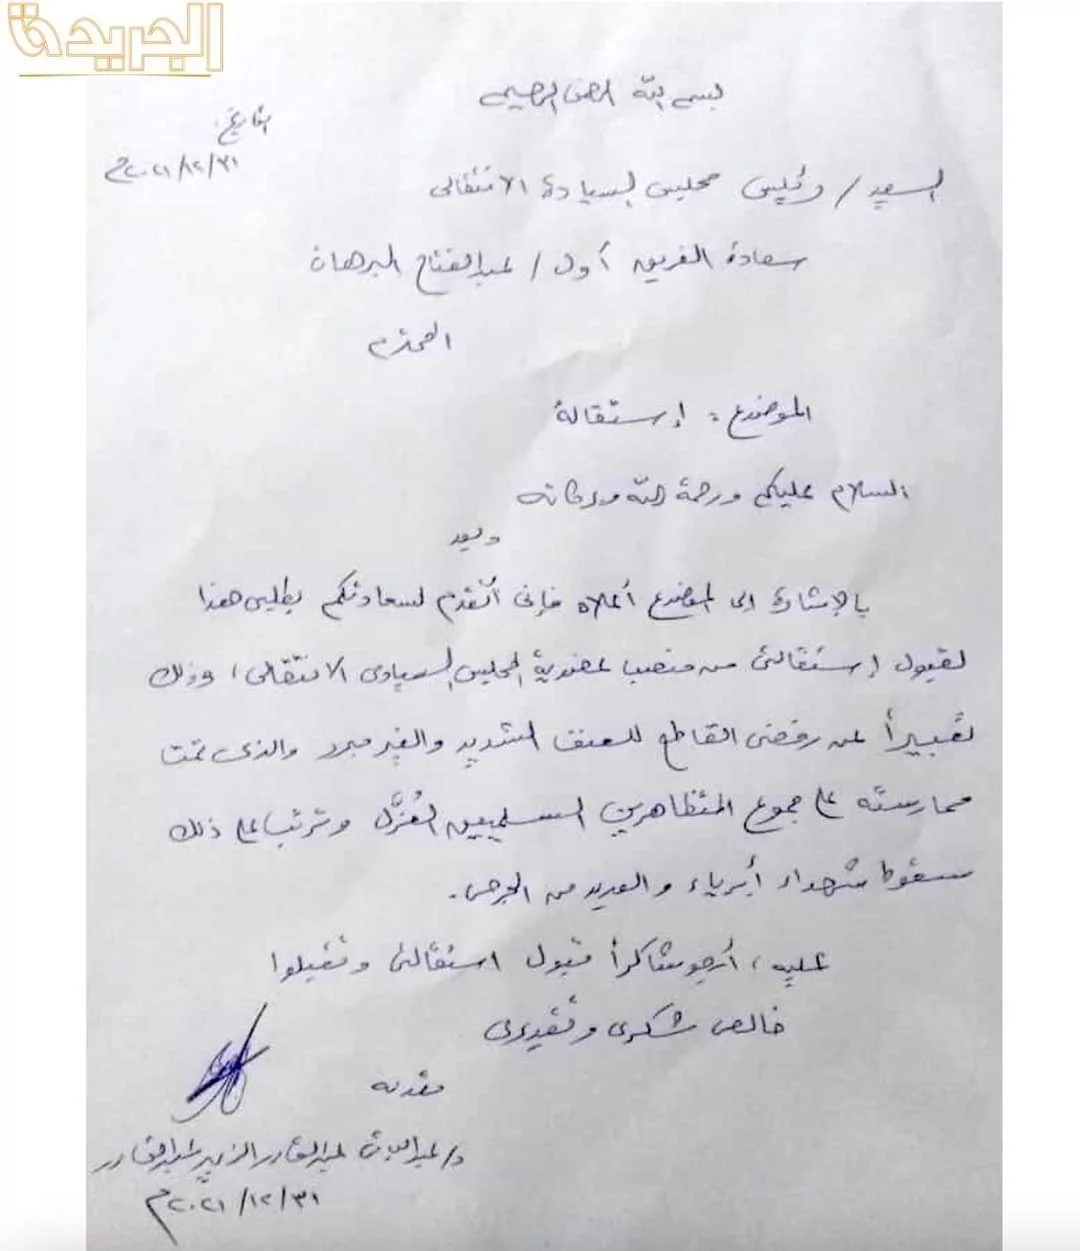 الجريدة
بسم الله الرحمن الرحيم
التاريخ:
٣١/١٢/٢٠٢١م
السيد/ رئيس مجلس السيادة الانتقالى
سعادة الفريق أول/ عبدالفتاح البرهان
المحترم
الموضوع: إستقالة
السلام عليكم ورحمة الله وبركاته
وبعد
بالإشارة الى الموضوع أعلاه فإنى أتقدم لسعادتكم بطلبى هذا
لقبول إستقالتى من منصب عضوية المجلس السيادى الانتقالى، وذلك
تعبيراً عن رفضى القاطع للعنف الشديد والغير مبرر والذى تمت
ممارسته على جموع المتظاهرين السلميين العُزَّل وترتب على ذلك
سقوط شهداء أبرياء والعديد من الجرحى.
عليه، أرجو شاكراً قبول استقالتى وتقبلوا
خالص شكرى وتقديرى
مقدمه
د/ عبدالباقى عبدالقادر الزبير عبدالقادر
٣١/١٢/٢٠٢١م